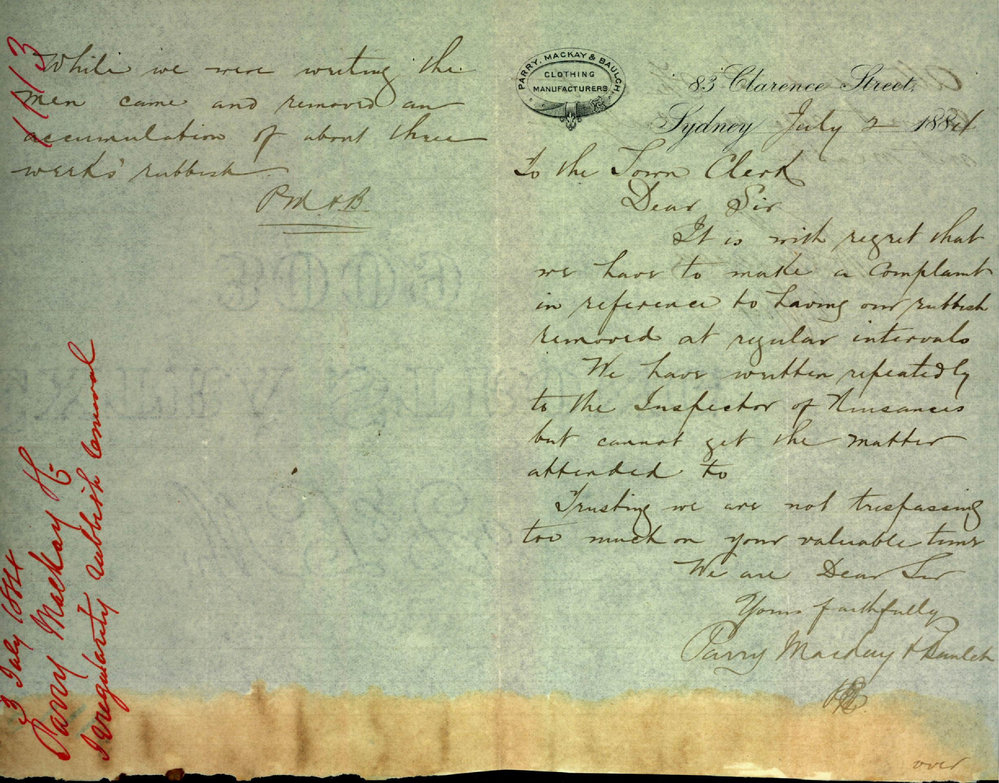 PARRY, MACKAY & BAULCH
CLOTHING
MANUFACTURERS
83 Clarence Street,
Sydney July 2 1884
To the Town Clerk
Dear Sir
It is with regret that
we have to make a complaint
in reference to having our rubbish
removed at regular intervals
We have written repeatedly
to the Inspector of Nuisances
but cannot get the matter
attended to
Trusting we are not trespassing
too much on your valuable time
We are Dear Sir
Yours faithfully
Parry Mackay & Baulch
over
While we were writing the
men came and removed an
accumulation of about three
week's rubbish
P M & B
1113
3 July 1884
Parry Mackay
Irregularity rubbish removal